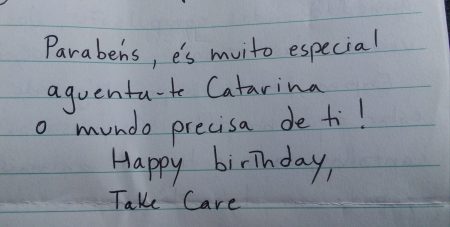 Parabéns, és muito especial
aguenta-te Catarina
o mundo precisa de ti!
Happy birthday,
Take Care